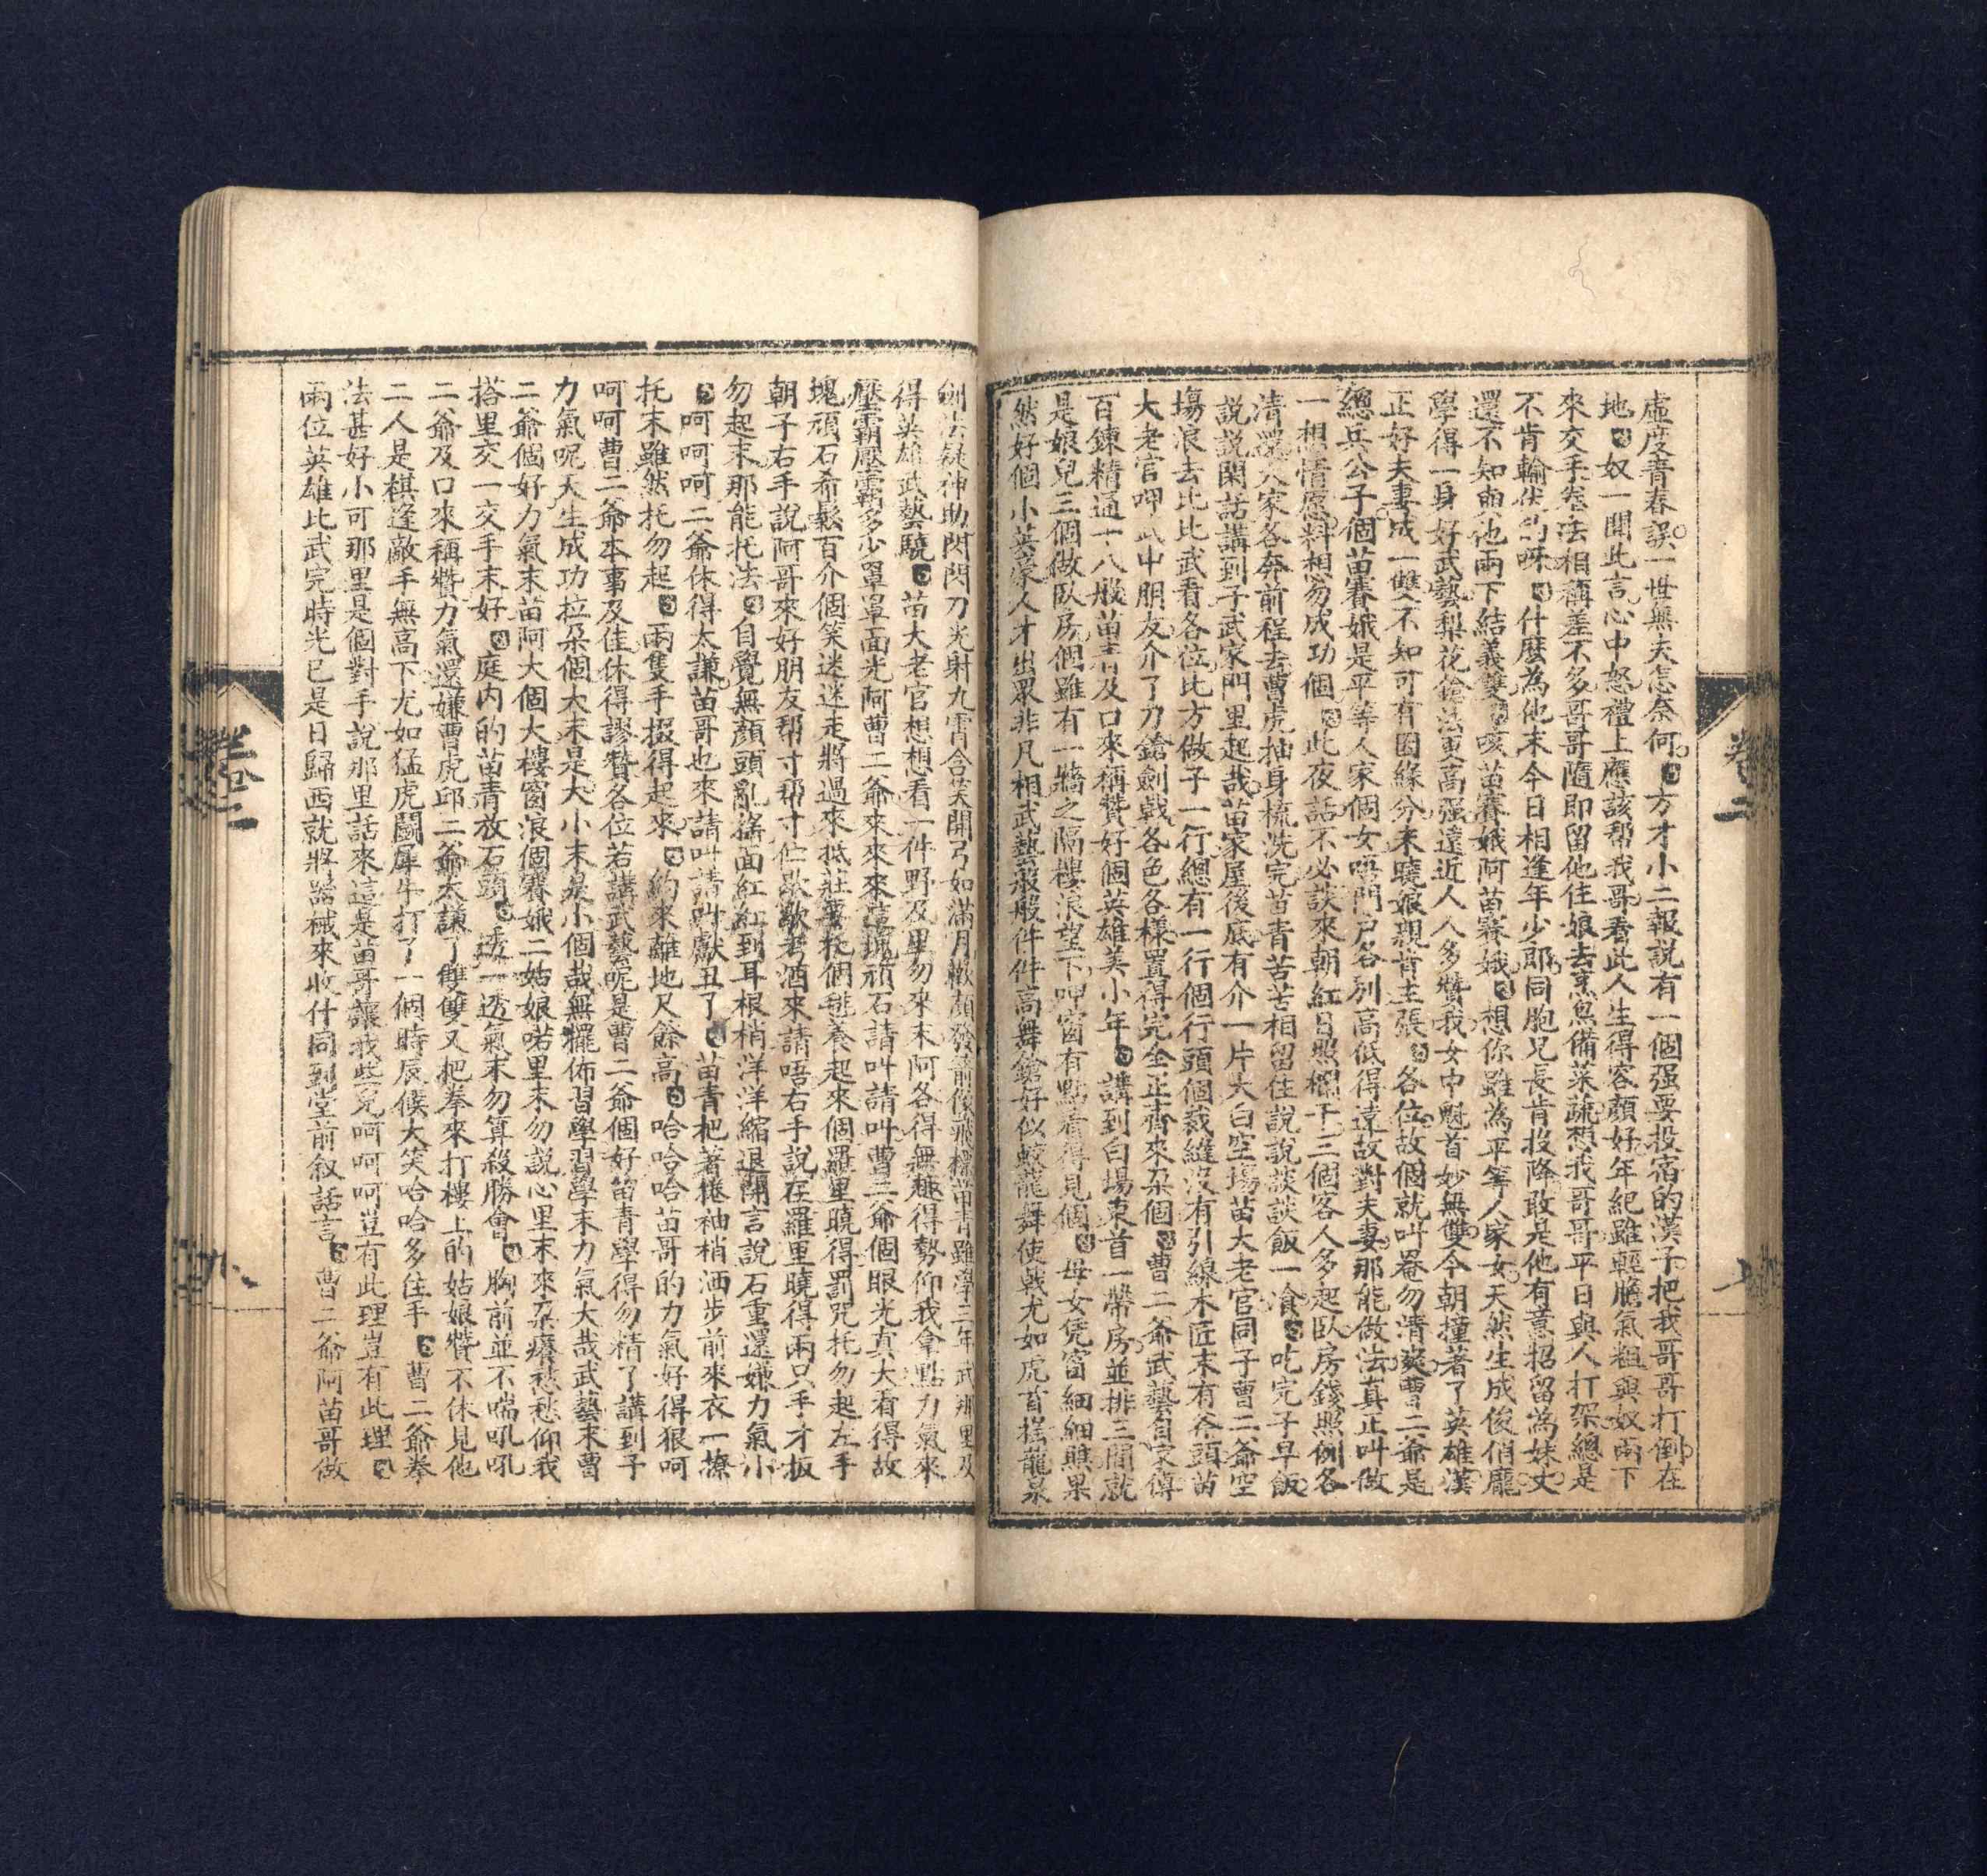 虛度青春誤一世無夫怎奈何方才小二報説有一個强要投宿的漢子把我哥哥打倒在
地奴一聞此言心中怒禮上應該帮我哥看此人生得容顏好年紀雖輕膽氣粗與奴兩下
來交手拳法相稱差不多哥哥隨即留他住娘去烹魚備菜蔬想我哥哥平日與人打架總是
不肯輸伏的呀什麽為他末今日相逢年少郎同胞兄長肯投降敢是他有意招留為妹丈
還不知與他兩下結義雙咳苗賽娥阿苗賽娥想你雖為平等人家女天然生成俊俏龐
學得一身好武藝梨花鎗法更高强遠近人人多贊我女中魁首妙無雙今朝撞著了英雄漢
正好夫妻成一雙不知可有因緣分未曉娘親肯主張各位故個就叫礜勿清爽曹二爺是
總兵公子個苗賽娥是平等人家個女唔門户各别高低得遠故對夫妻那能做法真正叫做
一相情愿料想勿成功個此夜話不必談來朝紅日照欄干三個客人多起臥房錢照例各
清還大家各奔前程去曹虎抽身梳洗完苗青苦苦相留住説説談談飯一飡吃完子早飯
説説閑話講到子武家門里起哉苗家屋後底有介一片大白空塲苗大老官同子曹二爺空
塲浪去比比武看各位比方做子一行總有一行個行頭個裁縫没有引線木匠末有斧頭苗
大老官呷武中朋友介了刀鎗劍戟各色各樣置得完全正齊來朶個曹二爺武藝自家傳
百鍊精通十八般苗青及口來稱贊好個英雄美小年講到白塲東首一帶房並排三間就
是娘兒三個做臥房個雖有一牆之隔樓浪望下呷窗有點看得見個母女凭窗細細瞧果
然好個小英豪人才出眾非凡相武藝般般件件高舞鎗好似蛟龍舞使戟尤如虎首摇龍泉
劍法疑神助閃閃刀光射九霄含笑開弓如滿月歡顏發箭像飛標苗青雖學三年武那里及
得英雄武藝驍苗大老官想想看一件野及里勿來末阿各得無趣得勢仰我拿點力氣來
壓霸壓霸多少罩罩面光阿曹二爺來來來這塊頑石請叫請叫曹二爺個眼光真大看得故
塊頑石希鬆百介個笑迷迷走將過來抵莊要托個毬養起來個羅里曉得罰咒托勿起左手
朝子右手說阿哥來好朋友帮寸帮寸伫歇歇考酒來請唔右手說在羅里曉得兩只手才扳
勿起末那能托法自覺無顏頭亂摇面紅紅到耳根梢洋洋縮退開言說石重還嫌力氣小
呵呵呵二爺休得太謙苗哥也來請叫請叫獻丑了苗青把著捲袖梢洒步前來衣一撩
托末雖然托勿起兩隻手掇得起來約來離地尺餘高哈哈哈苗哥的力氣好得狠呵
呵呵曹二爺本事及佳休得謬贊各位若講武藝呢是曹二爺個好苗青學得勿精了講到子
力氣呢天生成功拉朶個大末是大小末是小個哉無擺佈習學習學末力氣大哉武藝來曹
二爺個好力氣末苗阿大個大樓窗浪個賽娥二姑娘喏里末勿說心里末來朶癢愁愁仰我
搭里交一交手末好庭内的苗青放石頭透一透氣末勿算殺勝會胸前並不喘吼吼
二爺及口來稱贊力氣還嫌曹虎邱二爺太謙了雙雙又把拳來打樓上的姑娘贊不休見他
二人是棋逢敵手無高下尤如猛虎鬭犀牛打了一個時辰候大笑哈哈多住手曹二爺拳
法甚好小可那里是個對手說那里話來這是苗哥讓我些兒呵呵呵豈有此理豈有此理
兩位英雄比武完時光已是日歸西就將器械來收什同到堂前叙話言曹二爺阿苗哥做
卷二
卷二